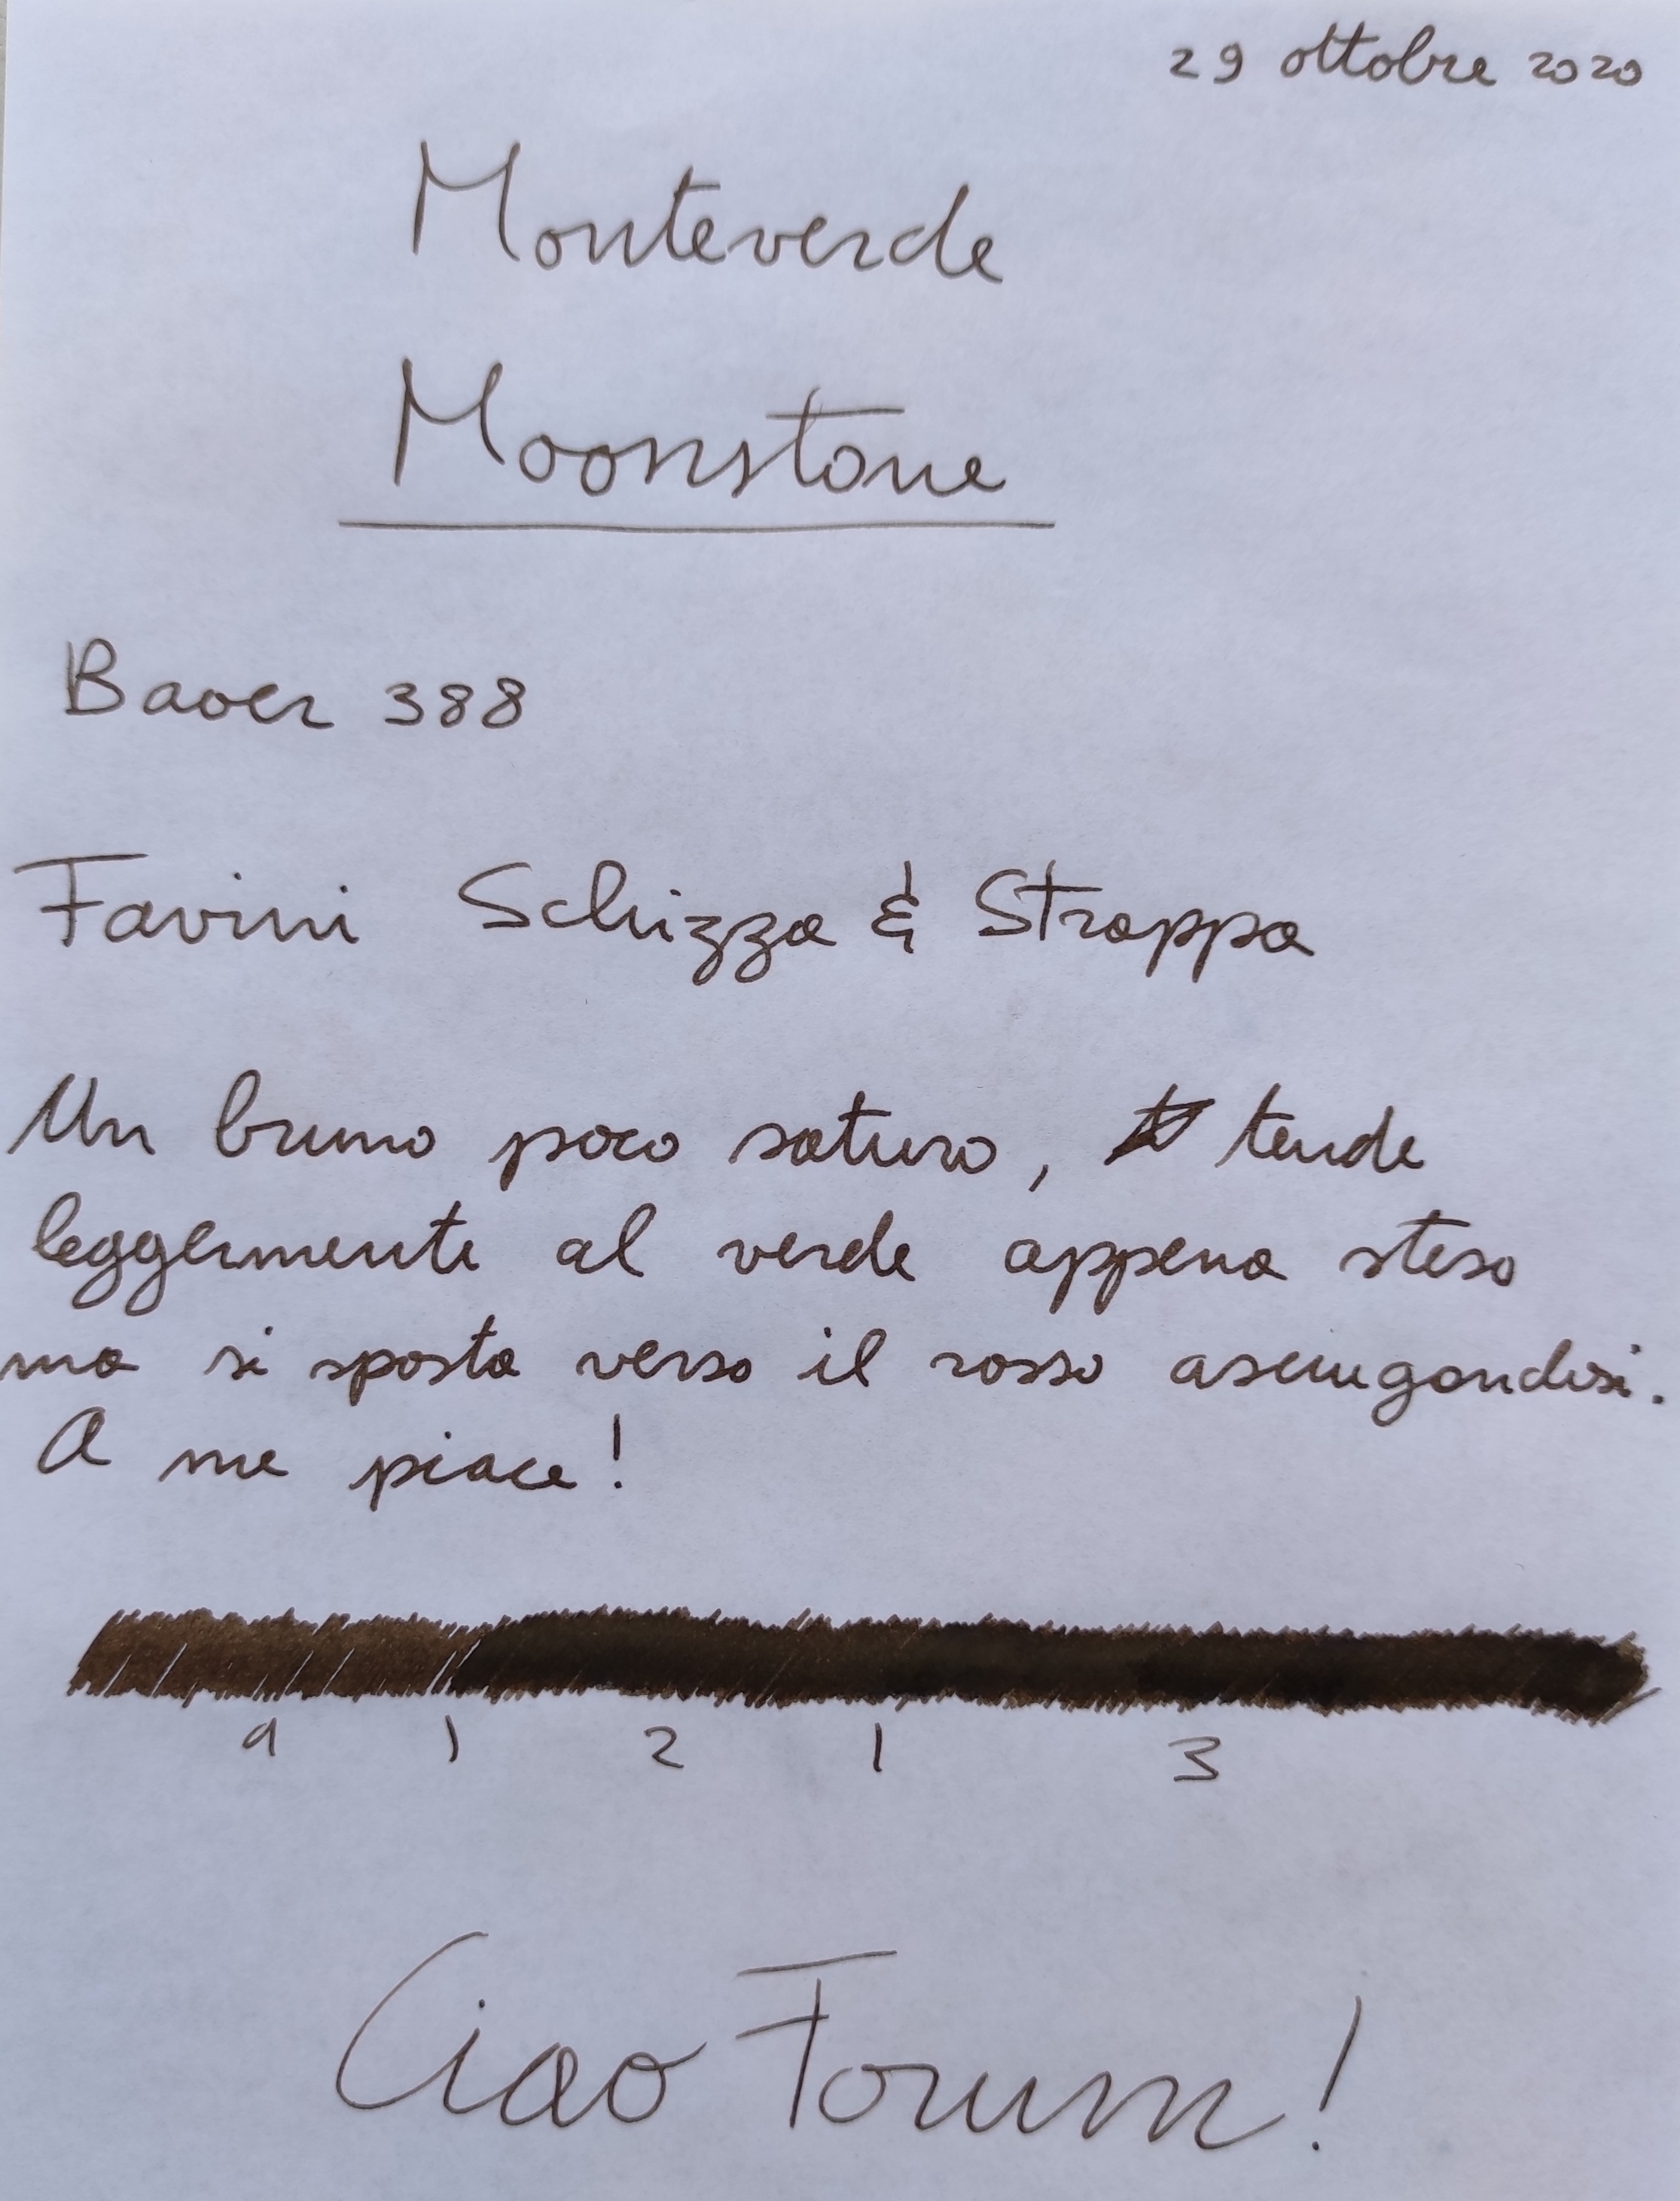 29 ottobre 2020
Monteverde
Moonstone
Baoer 388
Favini Schizza & Strappa
Un bruno poco saturo, tende
leggermente al verde appena steso
ma si sposta verso il rosso asciugandosi.
A me piace!
1 | 2 | 3
Ciao Forum!